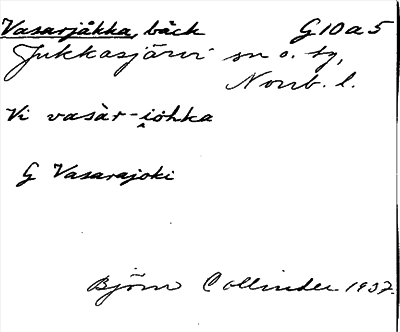 Vasarjåkka, bäck G10a5
Jukkasjärvi sn o. tg,
Norrb. l.
Vi vasàr-i̭ohka
G Vasarajoki
Björn Collinder 1937.